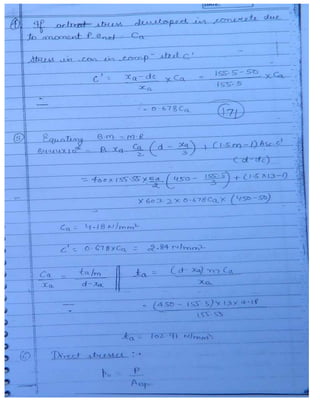 ④ If actual stress developed in concrete due
to moment P.e. =  Ca
stress in con. in comp. steel C'
C' = xa - dc / xa × Ca = 155.5 - 50 / 155.5 × Ca
= 0.678 Ca
171
⑤ Equating B.M = M.R
= B xa Ca/2 (d - xa/3) + (1.5m - 1) Asc. c'
(d - dc)
= 400 × 155.55 × Ca/2 (450 - 155.5/3) + (1.5 × 13 - 1)
× 603.2 × 0.678 × Ca × (450 - 50)
Ca = 4.18 N/mm²
C' = 0.678 × Ca = 2.84 N/mm²
Ca / xa = ta/m / d - xa || ta = (d - xa) m Ca / xa
= (450 - 155.5) × 13 × 4.18 / 155.55
ta = 102.91 N/mm²
⑥ Direct stresses :-
P₀ = P / Aeqv.